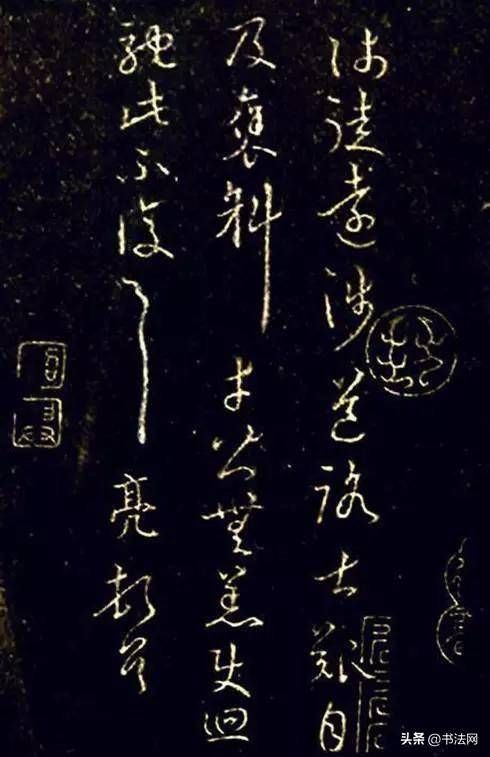 師徒遠涉道路甚艱自
及褒斜幸皆無恙使迴
馳此不復云云亮頓首
头条 @书法网